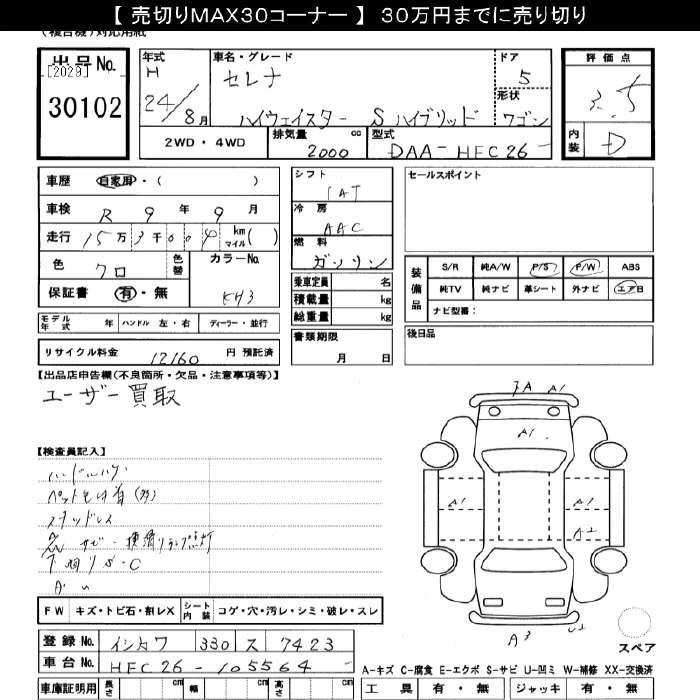 【 売切りMAX30コーナー 】 30万円までに売り切り
(複合機)対応用紙
出品No.
[2029]
30102
年式
H
24/8月
車名・グレード
セレナ
ハイウェイスター S ハイブリッド
ドア
5
形状
ワゴン
評価点
3.5
内装
D
2WD・4WD
排気量 cc
2000
型式
DAA-HFC26-
車歴 自家用・( )
車検 R 9 年 9 月
走行 15万3千004 km マイル( )
色 クロ
色替
カラーNo.
KH3
保証書 有・無
モデル年式 年 ハンドル 左・右 ディーラー・並行
リサイクル料金 12160 円 預託済
シフト
IAT
冷房
AAC
燃料
ガソリン
乗車定員 名
積載量 kg
総重量 kg
書類期限
月 日
セールスポイント
装備品
S/R 純A/W P/S P/W ABS
純TV 純ナビ 革シート 外ナビ エアB
ナビ型番:
後日品
【出品店申告欄(不良箇所・欠品・注意事項等)】
ユーザー買取
【検査員記入】
スタッドレス
下廻りS・C
FW キズ・トビ石・割レX シート内装 コゲ・穴・汚レ・シミ・破レ・スレ
登録No. イシカワ 330 ス 7423
車台No. HFC26-105564
車庫証明用 長さ cm 幅 cm 高さ cm
A1
A1
A1
A1
A2
A3
U2
スペア
A-キズ C-腐食 E-エクボ S-サビ U-凹ミ W-補修 XX-交換済
工具 有・無 ジャッキ 有・無